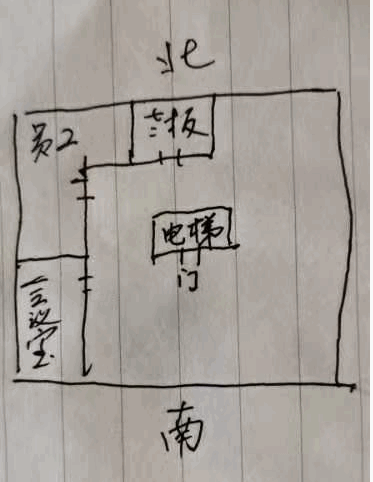 北
老板
员工
电梯
门
会议室
南